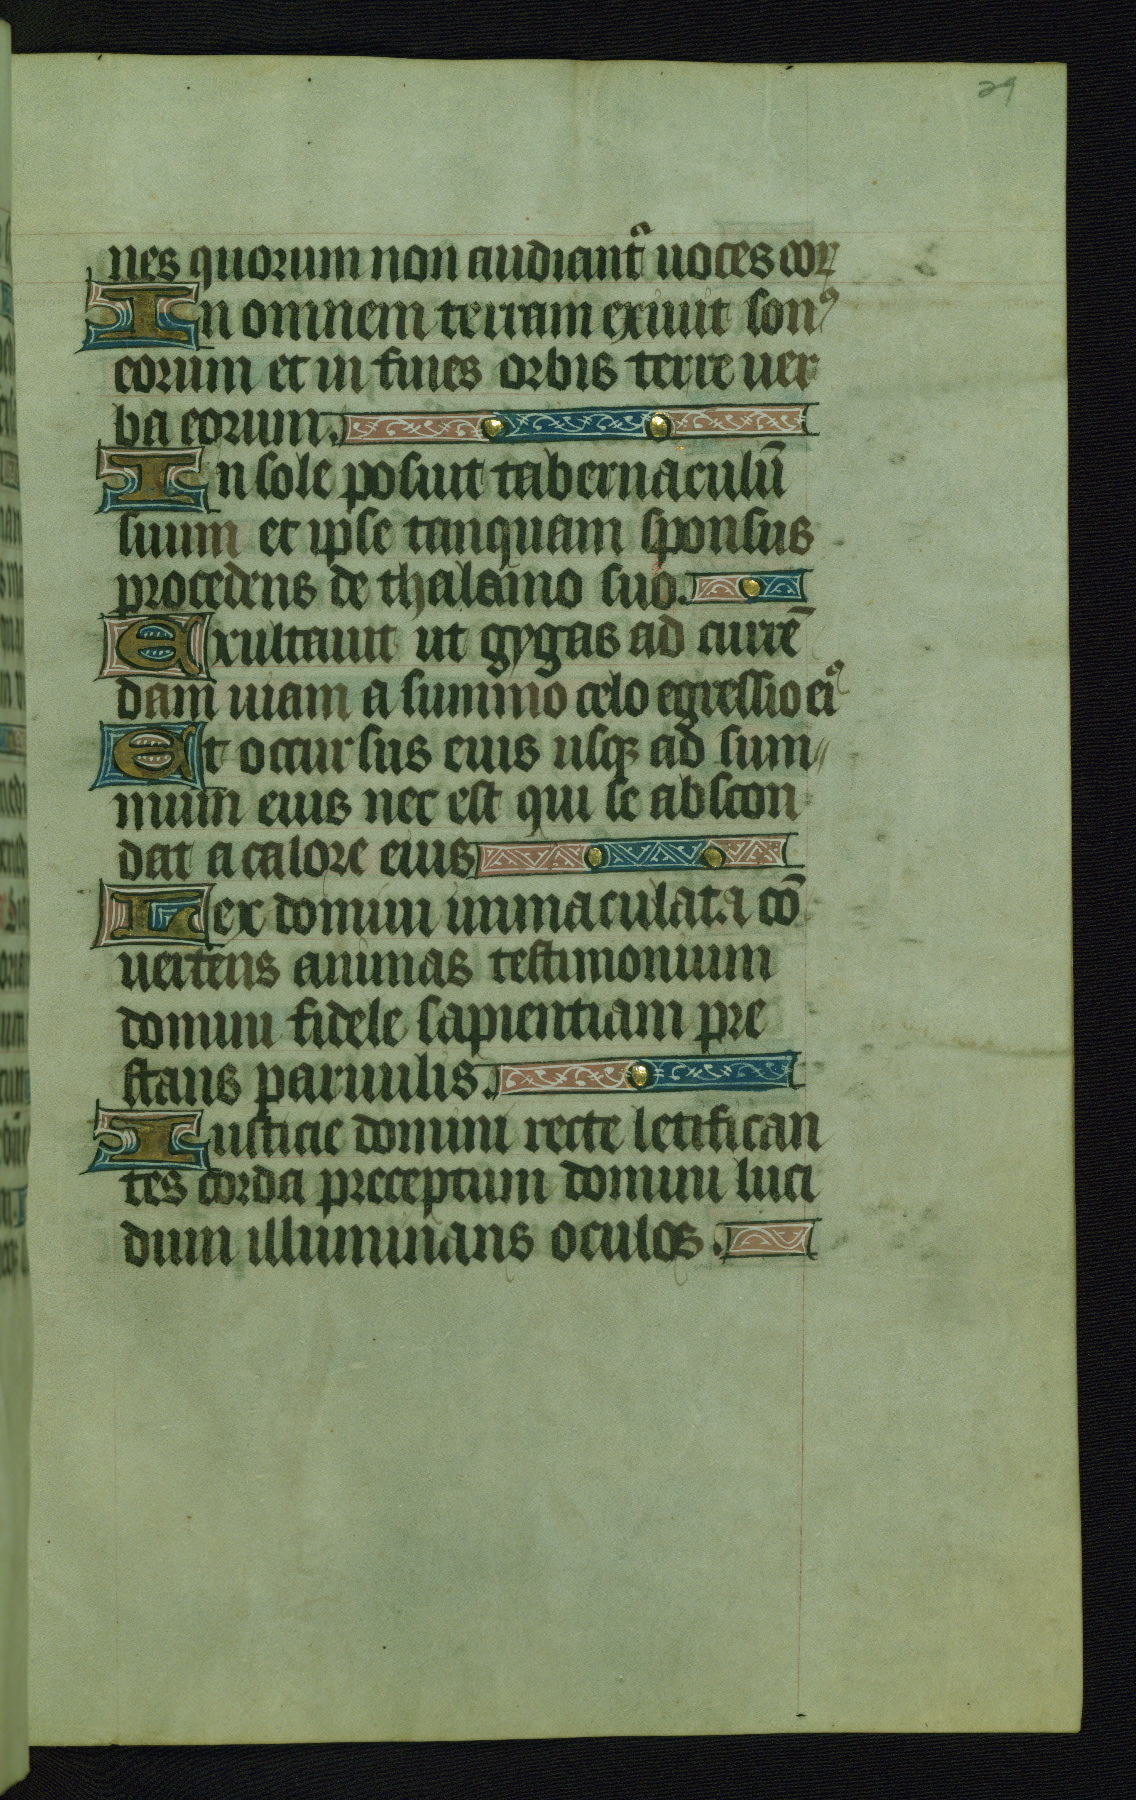 29
nes quorum non audiantᷣ uoces eoꝝ
In omnem terram exiuit sonꝰ
eorum et in fines orbis terre uer
ba eorum.
In sole posuit tabernaculū
suum et ipse tanquam sponsus
procedens de thalamo suo.
Exultauit ut gygas ad currē
dam uiam a summo celo egressio eiꝰ
Et occursus eius usqꝫ ad sum〃
mum eius nec est qui se abscon
dat a calore eius
Lex domini inmaculata cō
uertens animas testimonium
domini fidele sapientiam pre
stans paruulis.
Iusticie domini recte letifican
tes corda preceptum domini luci
dum illuminans oculos.